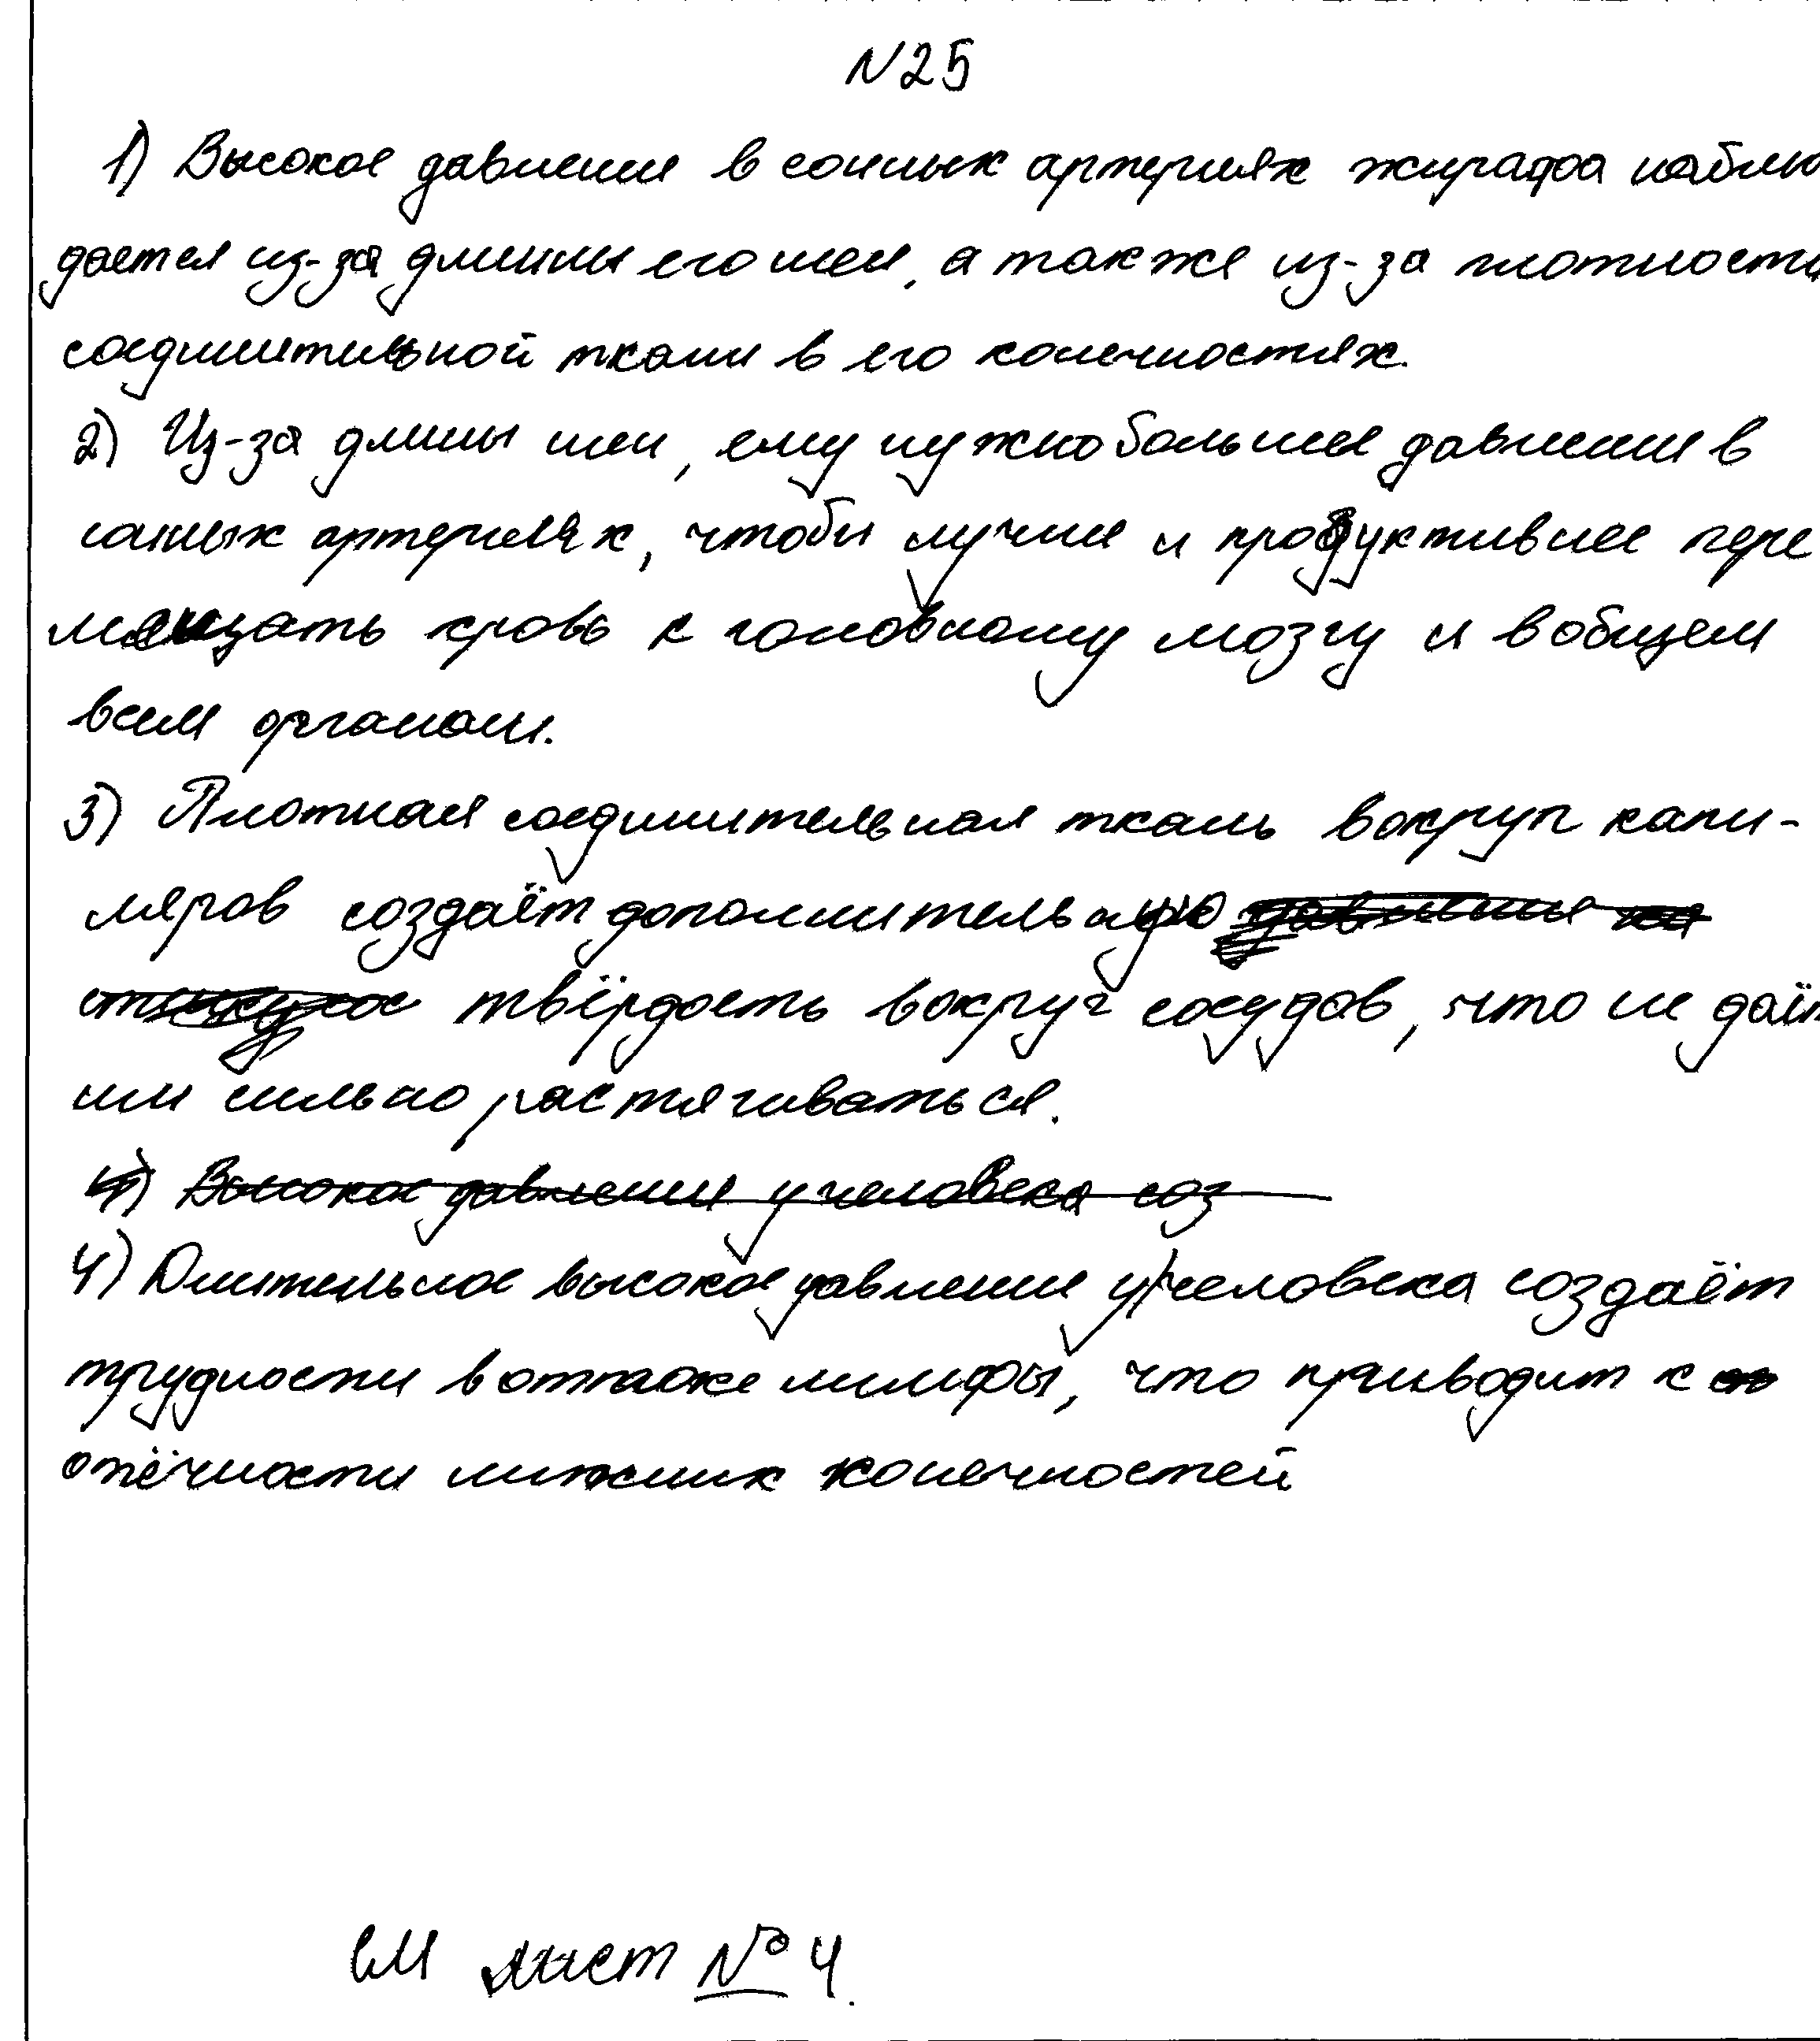 №25
1) Высокое давление в сонных артериях жирафа наблю
дается из-за длины его шеи, а также из-за плотности
соединительной ткани в его конечностях.
2) Из-за длины шеи, ему нужно большее давление в
сонных артериях, чтобы лучше и продуктивнее пере
мещать кровь к головному мозгу и в общем
всем органам.
3) Плотная соединительная ткань вокруг капи-
ляров создаёт дополнительную давление на
твёрдость вокруг сосудов, что не даёт
им сильно растягиваться.
4) Высокое давление у человека соз
4) Длительное высокое давление у человека создаёт
трудности в оттоке лимфы, что приводит к
отёчности нижних конечностей
см лист №4.